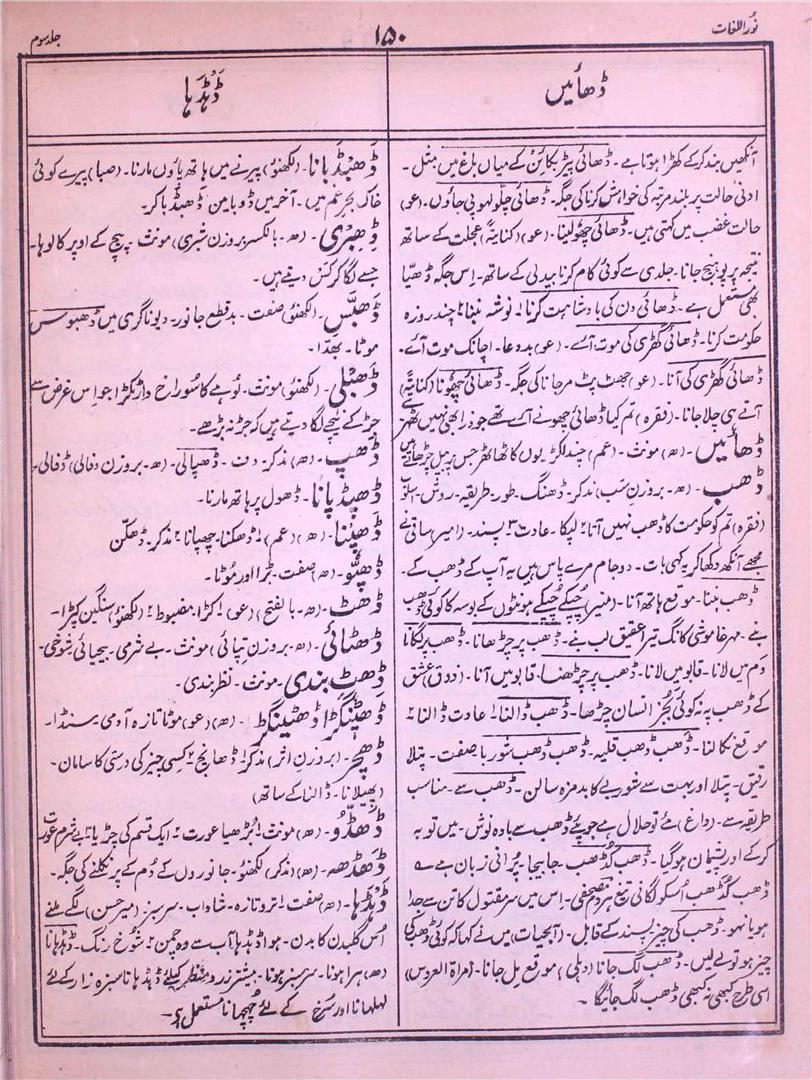 نُوراللغات
۱۵۰
جلد سوم
ڈھائیں
ڈہڈہا
آنکھیں بند کر کے کھڑا ہوتا ہے۔ ڈھائی پیڑ بکائن کے میاں باغ میں مثل۔
ادنیٰ حالت پر بلند مرتبہ کی خواہش کرنا کی جگہ۔ ڈھائی چلو لہو پی جاؤں۔ (عو)
حالت غضب میں کہتی ہیں۔ ڈھائی چھو لینا۔ (عو) (کنایۃً) عجلت کے ساتھ
نتیجہ پر پہونچ جانا۔ جلدی سے کوئی کام کرنا بیدلی کے ساتھ۔ اس جگہ ڈھیا
بھی مستعمل ہے۔ ڈھائی دن کی بادشاہت کرنا ۱ نوشہ بننا ۲ چند روزہ
حکومت کرنا۔ ڈھائی گھڑی کی موت آئے۔ (عو) بد دعا۔ اچانک موت آئے۔
ڈھائی گھڑی کی آنا۔ (عو) جھٹ پٹ مر جانا کی جگہ۔ ڈھائی چھونا (کنایۃً)
آتے ہی چلا جانا۔ (فقرہ) تم کیا ڈھائی چھونے آئے تھے جو ذرا بھی نہیں ٹھہرے
ڈھائیں۔ (ھ) مونث۔ (عم) چند لکڑیوں کا ٹھاٹھر جس پر بیل چڑھاتے ہیں
ڈھب۔ (ھ۔ بروزن سَب) مذکر۔ ڈھنگ۔ طور۔ طریقہ۔ روش۔ سلوب
(فقرہ) تم کو حکومت کا ڈھب نہیں آتا ۲ لپکا۔ عادت ۳ پسند۔ (امیر) ساقی نے
مجھے آنکھ دکھا کر یہ کہی بات۔ دو جام مرے پاس ہیں یہ آپ کے ڈھب کے۔
ڈھب بننا۔ موقع ہاتھ آنا۔ (منیر) چپکے چپکے ہونٹوں کے بوسہ کا کوئی ڈھب
بنے۔ مہر خاموشی کا نگ تیرے عقیق لب بنے۔ ڈھب پر چڑھانا۔ ڈھب پر لگانا
دَم میں لانا۔ قابو میں لانا۔ ڈھب پر چڑھنا۔ قابو میں آنا۔ (ذوق) عشق
کے ڈھب پہ نہ کوئی بجُز انسان چڑھا۔ ڈھب ڈالنا ۱ عادت ڈالنا ۲
موقع نکالنا۔ ڈھب ڈھب قلیہ۔ ڈھب ڈھب شوربا صفت۔ پتلا
رقیق۔ پتلا اور بہت سے شوربے کا بدمزہ سالن۔ ڈھب سے۔ مناسب
طریقہ سے۔ (داغ) مئے تو حلال ہے جو پئے ڈھب سے بادہ نوش۔ میں توبہ
کر کے اور پشیمان ہو گیا۔ ڈھب کُڈھب جا بیجا۔ پُرانی زبان ہے ؎
ڈھب کُڈھب اُسکو لگانی تیغ ہر دم مصحفی۔ اِس میں سر مقتول کا تن سے جدا
ہو یا نہو۔ ڈھب کی چیز۔ پسند کے قابل۔ (آبحیات) میں نے کہا کہ کوئی ڈھب کی
چیز ہو تو لے لیں۔ ڈھب لگ جانا (دہلی) موقع مل جانا۔ (مراۃ العروس)
اسی طرح کبھی نہ کبھی ڈھب لگ جائیگا۔
ڈَھبڈبانا۔ (لکھنؤ) پیرنے میں ہاتھ پاؤں مارنا۔ (صبا) پیرے کوئی
خاک بحر غم میں۔ آخر میں ڈوبا من ڈھبڈبا کر۔
ڈِھبْری۔ (ھ۔ بالکسر بروزن شری) مونث۔ پیچ کے اوپر کا لوہا۔
جسے لگا کر کَس دیتے ہیں۔
ڈھَبّس۔ (لکھنؤ) صفت۔ بدقطع جانور۔ دیوناگری میں ڈھبوس
موٹا۔ بھدّا۔
ڈھَبْلی۔ (لکھنؤ) مونث۔ لوہے کا سوراخ دار ٹکڑا جو اس غرض سے
جڑ کے نیچے لگا دیتے ہیں کہ جڑ نہ بڑھے۔
ڈَھپ۔ (ھ) مذکر۔ دف۔ ڈھپالی۔ (ھ۔ بروزن دفالی) ڈفالی۔
ڈھپڈپانا۔ ڈھول پر ہاتھ مارنا۔
ڈَھپْنا۔ (ھ) (عم) ۱ ڈھکنا۔ چھپانا ۲ مذکر۔ ڈھکّن
ڈَھپُّو۔ (ھ) صفت۔ بُرا اور موٹا۔
ڈَھٹ۔ (ھ۔ بالفتح) (عو) ۱ کڑا۔ مضبوط ۲ (لکھنؤ) سنگین کپڑا۔
ڈَھٹائی۔ (ھ۔ بروزن تپائی) مونث۔ بے شرمی۔ بیحیائی۔ شوخی۔
ڈھٹ بندی۔ مونث۔ نظر بندی۔
ڈَھٹِنگڑا ڈھٹینگڑ۔ (ھ) (عو) موٹا تازہ آدمی۔ سنڈا۔
ڈَھچَر۔ (بروزن اثر) مذکر ۱ ڈھانچ ۲ کسی چیز کی درستی کا سامان۔
(پھیلانا۔ ڈالنا کے ساتھ)
ڈَھڈّو۔ (ھ) مونث ۱ بُڑھیا عورت ۲ ایک قسم کی چڑیا ۳ بے شرم عورت
ڈَھڈھہ۔ (ھ) (مذکر) لکھنؤ۔ جانوروں کے دُم کے پر نکلنے کی جگہ۔
ڈَہڈَہا۔ (ھ) صفت ۱ تروتازہ۔ شاداب۔ سرسبز (میر حسن) لگے ملنے
اُس گلبدن کا بدن۔ ہوا ڈہڈہا آب سے وہ چمن ۲ شوخ رنگ۔ ڈہڈہانا
(ھ) ہرا ہونا۔ سرسبز ہونا۔ بیشتر زرد و سَفید کیلئے ڈہڈہانا سبزہ زار کے لئے
لہلہانا اور سُرخ کے لئے چُہچہانا مستعمل ہے۔